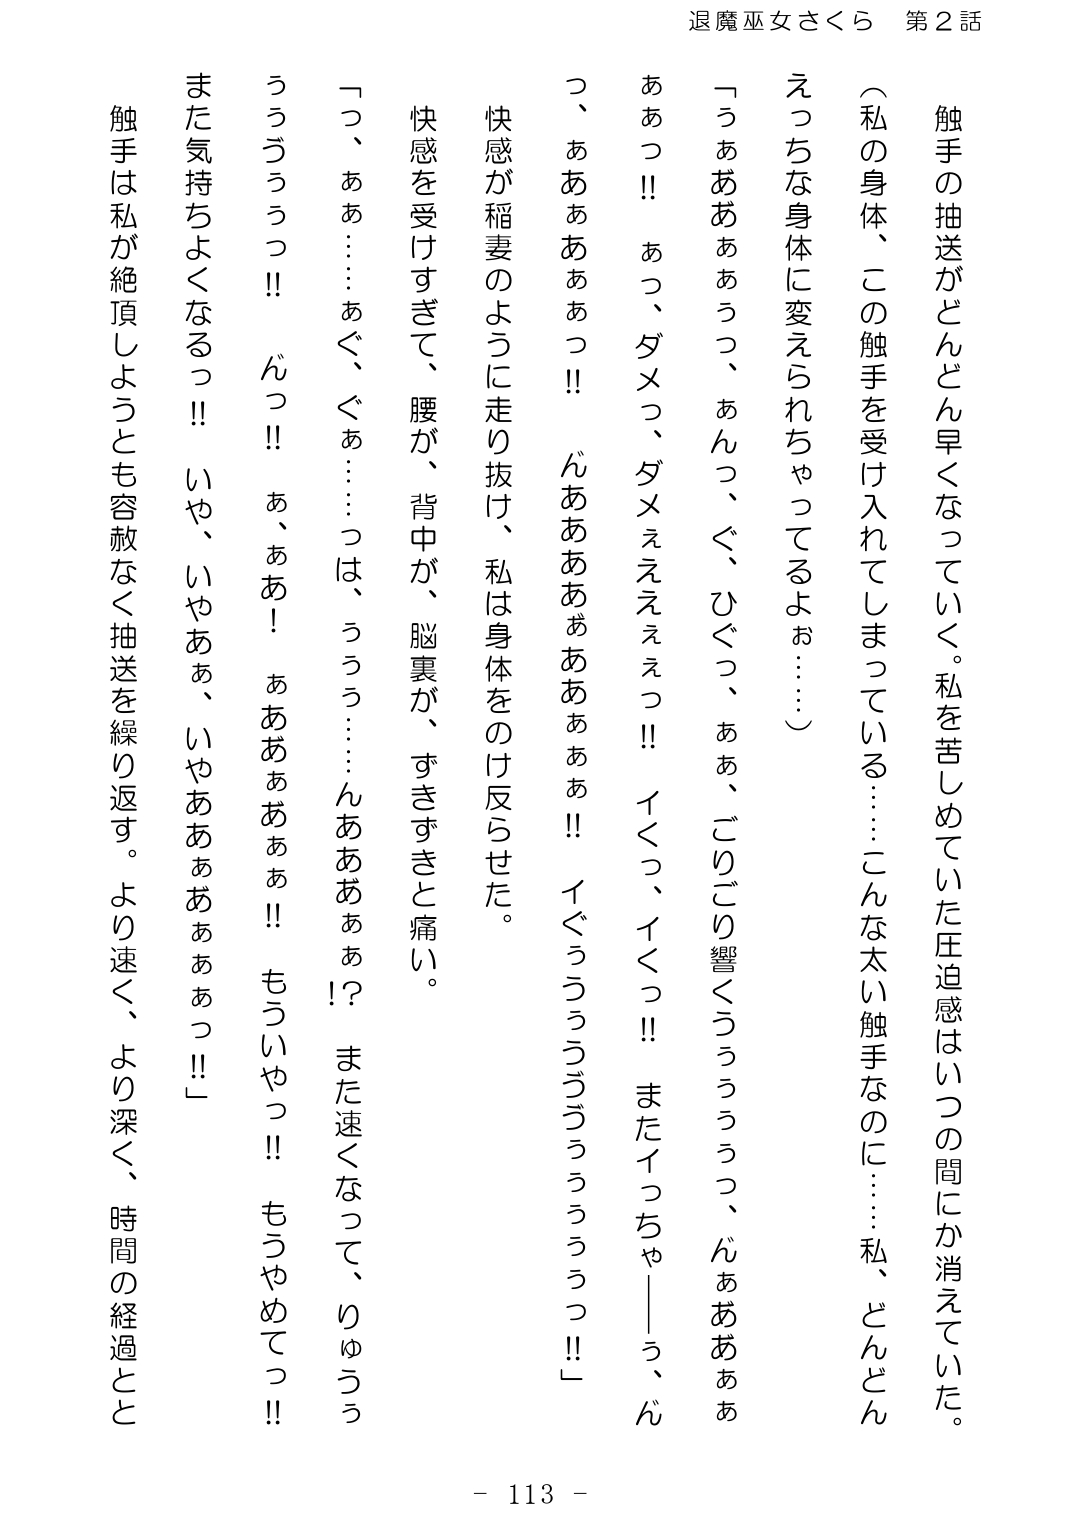 退魔巫女さくら　第２話
　触手の抽送がどんどん早くなっていく。私を苦しめていた圧迫感はいつの間にか消えていた。
（私の身体、この触手を受け入れてしまっている……こんな太い触手なのに……私、どんどん
えっちな身体に変えられちゃってるよぉ……）
「うぁあ゙あ゙ぁぁうっ、あんっ、ぐ、ひぐっ、ぁあ、ごりごり響くうぅぅぅぅっ、ん゙ぁあ゙あ゙ぁぁ
ああっ‼　あっ、ダメっ、ダメぇええぇぇっ‼　イくっ、イくっ‼　またイっちゃ――う、ん゙
っ、ぁあぁあぁぁっ‼　ん゙ああああぁ゙ああぁぁぁ‼　イぐぅうぅうゔゔぅぅぅぅぅっ‼」
　快感が稲妻のように走り抜け、私は身体をのけ反らせた。
　快感を受けすぎて、腰が、背中が、脳裏が、ずきずきと痛い。
「っ、ぁあ……あぐ、ぐぁ……っは、ぅぅう……んあああ゙ぁぁ！？　また速くなって、りゅうぅ
うぅゔぅぅっ‼　ん゙っ‼　ぁ、ぁあ！　ぁああ゙ぁあ゙ぁぁ‼　もういやっ‼　もうやめてっ‼
また気持ちよくなるっ‼　いや、いやあぁ、いやああぁあ゙ぁぁぁっ‼」
　触手は私が絶頂しようとも容赦なく抽送を繰り返す。より速く、より深く、時間の経過とと
- 113 -